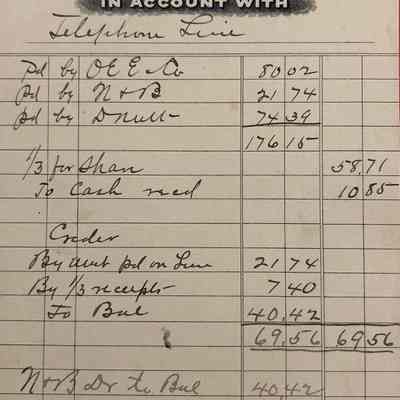 IN ACCOUNT WITH
Telephone Line
Pd by O E E & Co 80 02
Pd by N & B 21 74
pd by D Nutt 74 39
176 15
1/3 for Shar 58,71
To Cash recd 10 85
Creder
By amt pd on Line 21 74
By 1/3 receipts 7 40
To Bal 40,42
69,56 69 56
N & B Dr to Bal 40,42